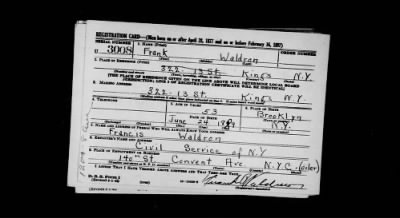 REGISTRATION CARD—(Men born on or after April 28, 1877 and on or before February 16, 1897)
SERIAL NUMBER 1. NAME (Print) ORDER NUMBER
U 3008 Frank Waldron
2. PLACE OF RESIDENCE (Print)
322 - 13 St. Kings N.Y.
[THE PLACE OF RESIDENCE GIVEN ON THE LINE ABOVE WILL DETERMINE LOCAL BOARD
JURISDICTION; LINE 2 OF REGISTRATION CERTIFICATE WILL BE IDENTICAL]
3. MAILING ADDRESS
322 - 13 St. Kings N.Y.
4. TELEPHONE 5. AGE IN YEARS 6. PLACE OF BIRTH
53 Brooklyn
DATE OF BIRTH
June 24 N.Y.
7. NAME AND ADDRESS OF PERSON WHO WILL ALWAYS KNOW YOUR ADDRESS
Francis Waldron
8. EMPLOYER'S NAME AND ADDRESS
Civil Service of N.Y.
9. PLACE OF EMPLOYMENT OR BUSINESS
140 St. Convent Ave. N.Y.C.
I AFFIRM THAT I HAVE VERIFIED ABOVE ANSWERS AND THAT THEY ARE TRUE.
D. S. S. Form 1
Frank Waldron